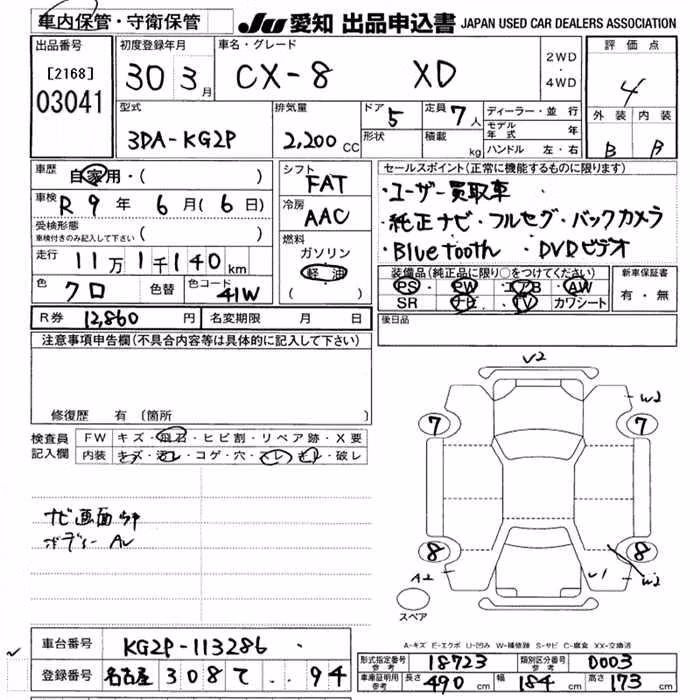 車内保管・守衛保管 JU 愛知 出品申込書 JAPAN USED CAR DEALERS ASSOCIATION
出品番号 初度登録年月 車名・グレード 2WD・4WD 評価点
[2168] 30 3月 CX-8 XD 4
03041
型式 排気量 ドア 5 定員 7人 ディーラー・並行 外装 内装
3DA-KG2P 2,200cc 形状 積載 kg モデル年式 年 B B
ハンドル 左・右
車歴 自家用・( ) シフト FAT セールスポイント(正常に機能するものに限ります)
車検 R9年 6月(6日) 冷房 AAC ・ユーザー買取車
受検形態 車検付きのみ記入して下さい ( ) ・純正ナビ・フルセグ・バックカメラ
走行 11万1千140km 燃料 ガソリン・軽油 ( ) ・Bluetooth ・DVDビデオ
色 クロ 色替 色コード 41W 装備品(純正品に限り○をつけてください) 新車保証書
PS・PW・エアB・AW 有・無
SR ナビ・TV カワシート
R券 12,860円 名変期限 月 日 後日品
注意事項申告欄(不具合内容等は具体的に記入して下さい)
修復歴 有 [箇所 ]
検査員記入欄 FW キズ・飛石・ヒビ割・リペア跡・X要
内装 キズ・汚レ・コゲ・穴・スレ・キレ・破レ
ナビ画面
ボディー
V2
W2
7 7
8 8
A2 V1 W2
スペア
A-キズ E-エクボ U-凹み W-補修跡 S-サビ C-腐食 XX-交換済
車台番号 KG2P-113286
登録番号 名古屋 308 て ・・94
形式指定番号 参考 18723 類別区分番号 参考 0003
車庫証明用 参考 長さ 490cm 幅 184cm 高さ 173cm